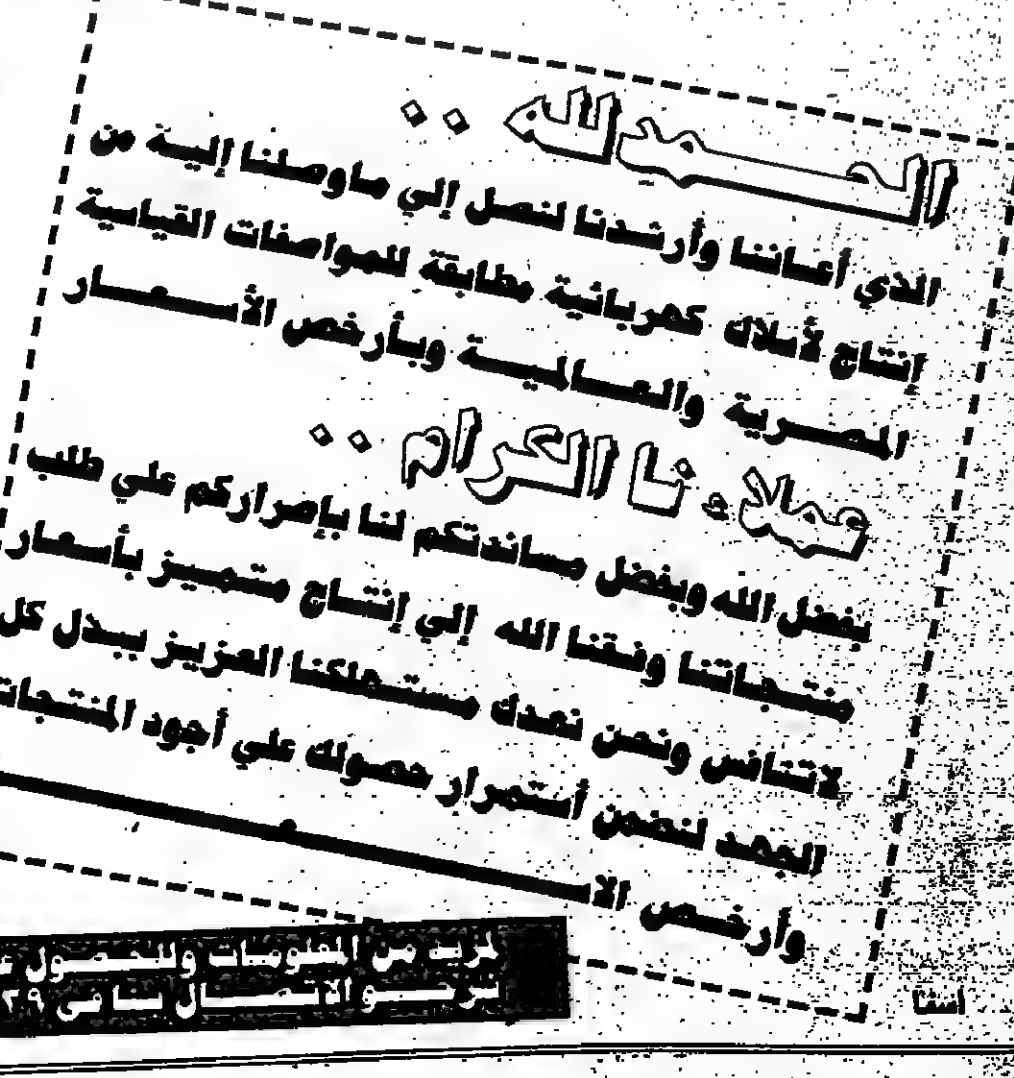 الحمد لله ..
الذي أعاننا وأرشدنا لنصل إلي ماوصلنا إلية من
إنتاج لأسلاك كهربائية مطابقة للمواصفات القياسية
المصرية والعالمية وبأرخص الأسعار
عملاء نا الكرام ..
بفضل الله وبفضل مساندتكم لنا بإصراركم علي طلب
منتجاتنا وفقنا الله إلي إنتاج متميز بأسعار
لاتنافس ونحن نعدك مستهلكنا العزيز ببذل كل
الجهد لنضمن أستمرار حصولك علي أجود المنتجات
وأرخص
لمزيد من المعلومات والحصول
نرجو الاتصال بنا في